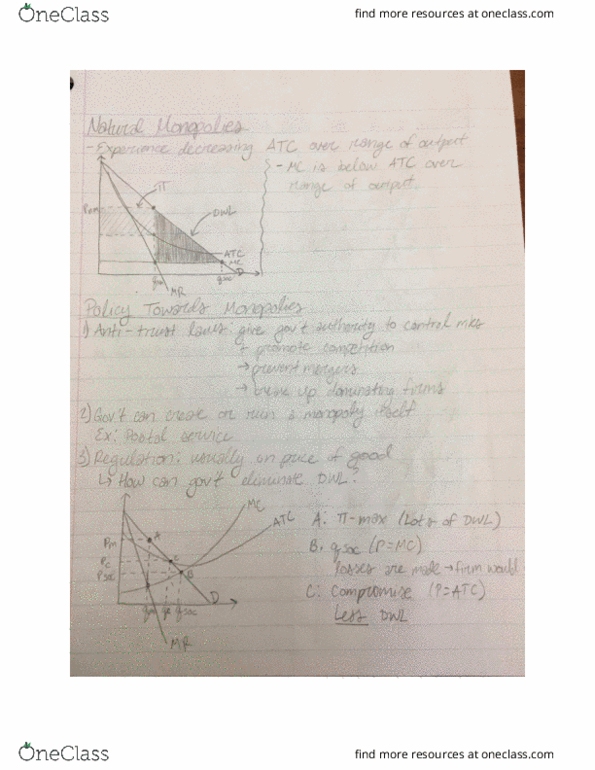 OneClass
find more resources at oneclass.com
Natural Monopolies
- Experience decreasing ATC over range of output
- MC is below ATC over
range of output.
π
Pm
DWL
ATC
MC
D
qm
qsoc
MR
Policy Towards Monopolies
1) Anti-trust laws: give gov't authority to control mkts
+ promote competition
→ prevent mergers
→ break up dominating firms
2) Gov't can create or run a monopoly itself
Ex: Postal service
3) Regulation: usually on price of good
↳ How can gov't eliminate DWL?
MC
ATC
A: π-max (Lots of DWL)
Pm
A
B: qsoc (P=MC)
Pc
C
losses are made → firm would
Psoc
B
C: Compromise (P=ATC)
Less DWL
D
qm
qc
qsoc
MR
OneClass
find more resources at oneclass.com